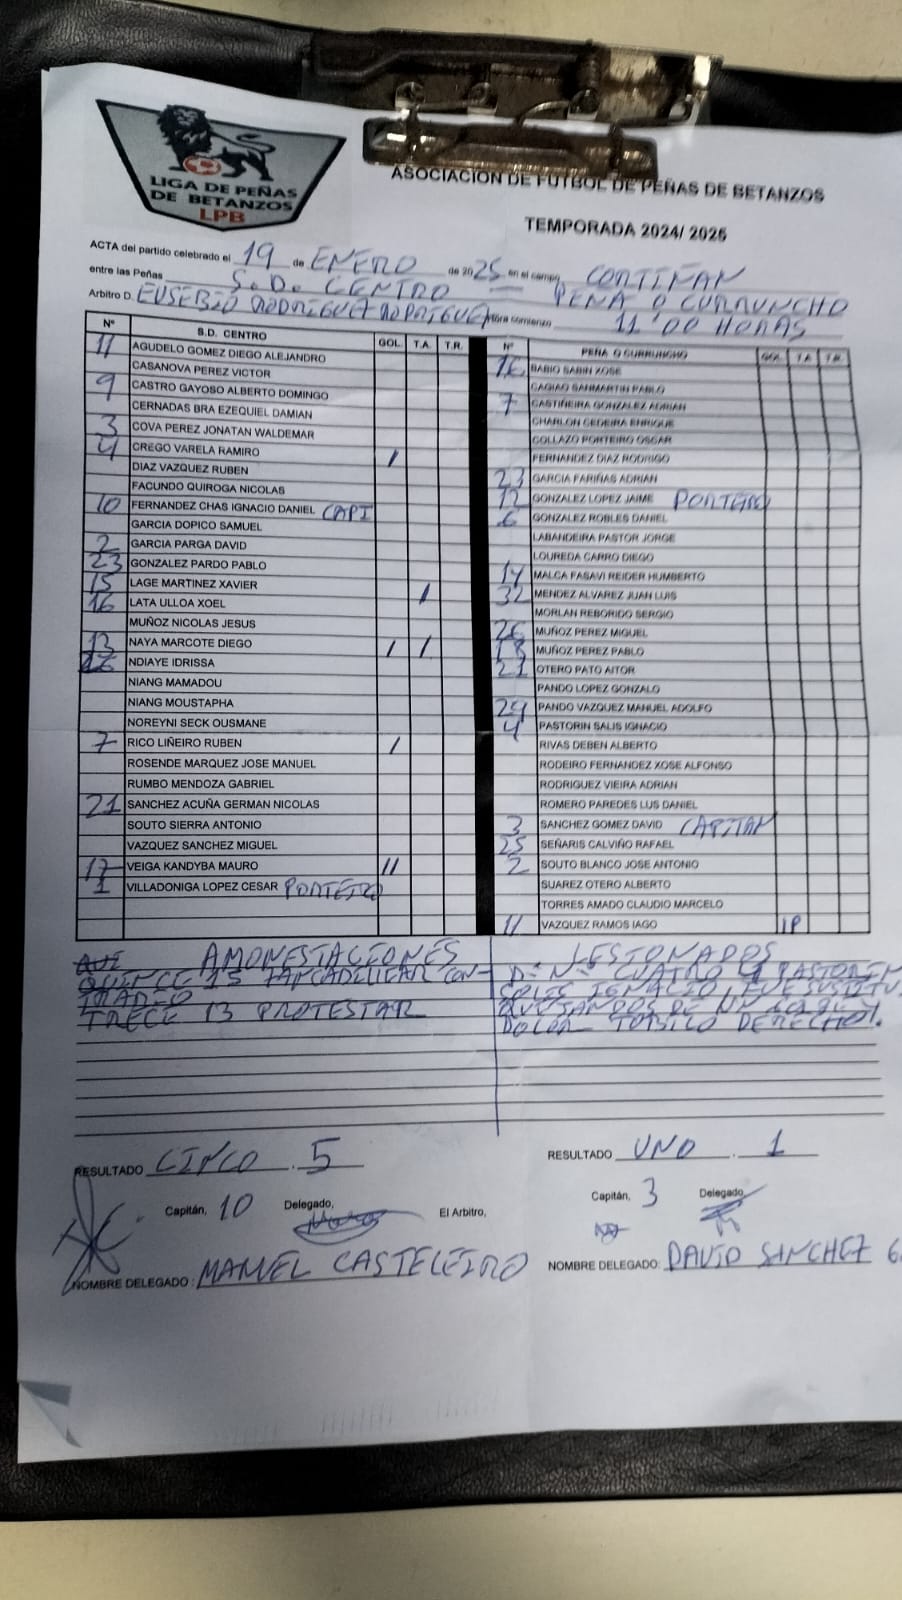 LIGA DE PEÑAS
DE BETANZOS
LPB
ASOCIACION DE FUTBOL DE PEÑAS DE BETANZOS
TEMPORADA 2024/ 2025
ACTA del partido celebrado el 19 de ENERO de 2025 en el campo CORTIÑAN
entre las Peñas S.D. CENTRO PEÑA O CURRUNCHO
Arbitro D. EUSEBIO RODRIGUEZ RODRIGUEZ Hora comienzo 11'00 HORAS
Nº S.D. CENTRO GOL. T.A. T.R.
11 AGUDELO GOMEZ DIEGO ALEJANDRO
CASANOVA PEREZ VICTOR
9 CASTRO GAYOSO ALBERTO DOMINGO
CERNADAS BRA EZEQUIEL DAMIAN
3 COVA PEREZ JONATAN WALDEMAR
4 CREGO VARELA RAMIRO /
DIAZ VAZQUEZ RUBEN
FACUNDO QUIROGA NICOLAS
10 FERNANDEZ CHAS IGNACIO DANIEL CAPI
GARCIA DOPICO SAMUEL
2 GARCIA PARGA DAVID
23 GONZALEZ PARDO PABLO
15 LAGE MARTINEZ XAVIER /
16 LATA ULLOA XOEL
MUÑOZ NICOLAS JESUS
13 NAYA MARCOTE DIEGO / /
NDIAYE IDRISSA
NIANG MAMADOU
NIANG MOUSTAPHA
NOREYNI SECK OUSMANE
7 RICO LIÑEIRO RUBEN /
ROSENDE MARQUEZ JOSE MANUEL
RUMBO MENDOZA GABRIEL
21 SANCHEZ ACUÑA GERMAN NICOLAS
SOUTO SIERRA ANTONIO
VAZQUEZ SANCHEZ MIGUEL
17 VEIGA KANDYBA MAURO //
1 VILLADONIGA LOPEZ CESAR PORTERO
Nº PEÑA O CURRUNCHO GOL. T.A. T.R.
16 BABIO SABIN XOSE
CAGIAO SANMARTIN PABLO
7 CASTIÑEIRA GONZALEZ ADRIAN
CHARLON CEDEIRA ENRIQUE
COLLAZO PORTEIRO OSCAR
FERNANDEZ DIAZ RODRIGO
23 GARCIA FARIÑAS ADRIAN
12 GONZALEZ LOPEZ JAIME PORTERO
6 GONZALEZ ROBLES DANIEL
LABANDEIRA PASTOR JORGE
LOUREDA CARRO DIEGO
14 MALCA FASAVI REIDER HUMBERTO
32 MENDEZ ALVAREZ JUAN LUIS
MORLAN REBORIDO SERGIO
26 MUÑOZ PEREZ MIGUEL
18 MUÑOZ PEREZ PABLO
21 OTERO PATO AITOR
PANDO LOPEZ GONZALO
29 PANDO VAZQUEZ MANUEL ADOLFO
4 PASTORIN SALIS IGNACIO
RIVAS DEBEN ALBERTO
RODEIRO FERNANDEZ XOSE ALFONSO
RODRIGUEZ VIEIRA ADRIAN
ROMERO PAREDES LUS DANIEL
3 SANCHEZ GOMEZ DAVID CAPITAN
25 SEÑARIS CALVIÑO RAFAEL
2 SOUTO BLANCO JOSE ANTONIO
SUAREZ OTERO ALBERTO
TORRES AMADO CLAUDIO MARCELO
11 VAZQUEZ RAMOS IAGO 1P
AMONESTACIONES
QUINCE 15 ZANCADILLEAR CON-
TRARIO
TRECE 13 PROTESTAR
LESIONADOS
D. Nº CUATRO 4 PASTORIN
IGNACIO, FUE SUSTITU
DE UN
DOLOR TOBILLO DERECHO.
RESULTADO CINCO . 5
RESULTADO UNO . 1
Capitán, 10 Delegado, El Arbitro, Capitán, 3 Delegado,
NOMBRE DELEGADO: MANUEL CASTELEIRO
NOMBRE DELEGADO: DAVID SANCHEZ G.